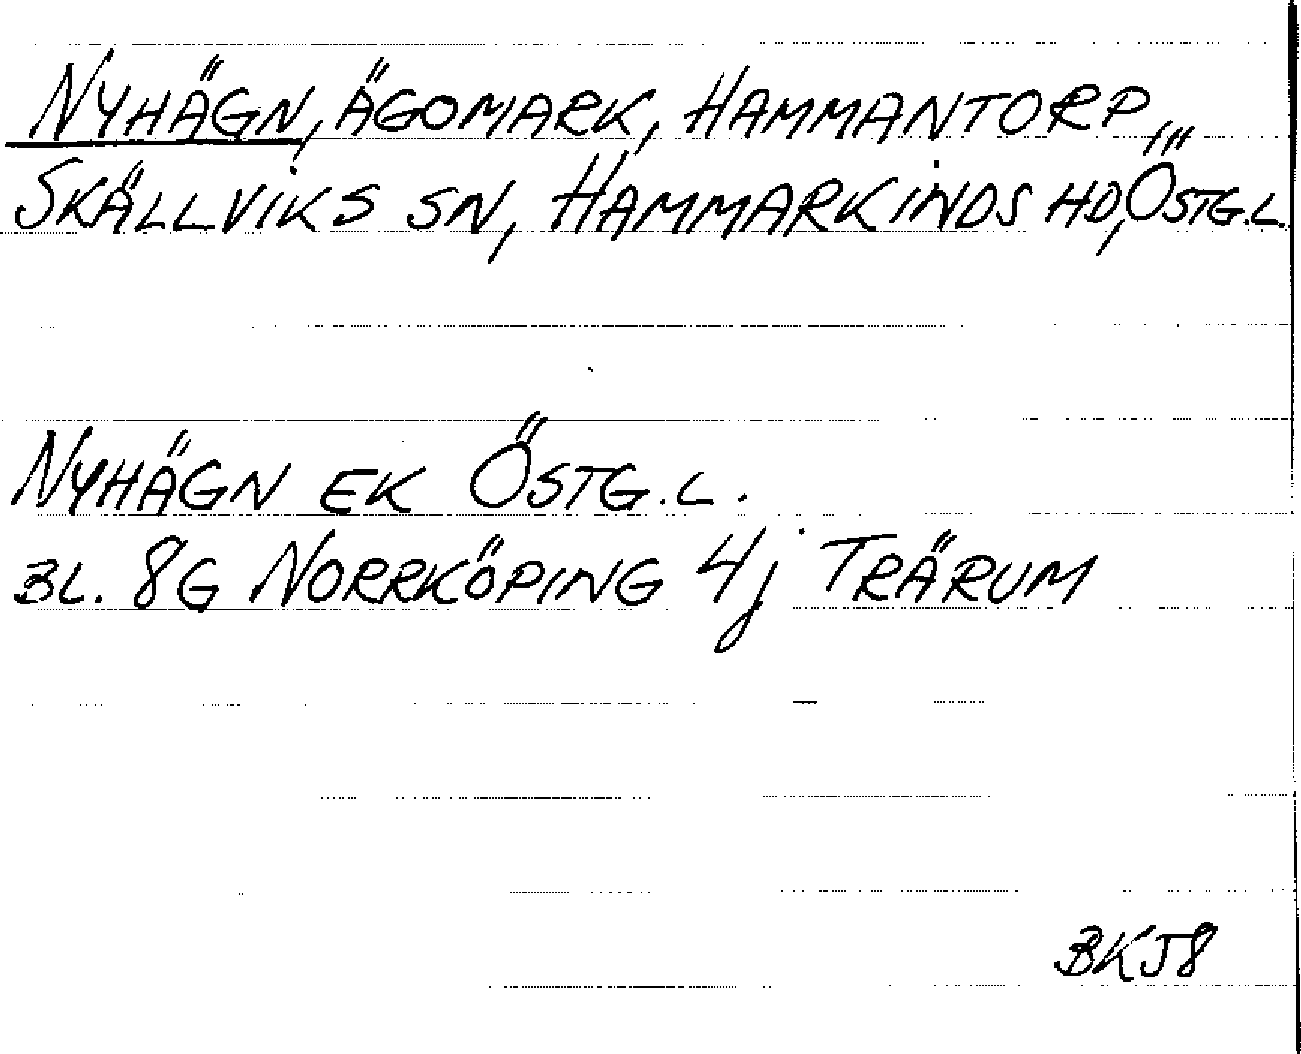 NYHÄGN, ÄGOMARK, HAMMANTORP,
SKÄLLVIKS SN, HAMMARKINDS HD, ÖSTG.L.
NYHÄGN EK ÖSTG.L.
BL. 8G NORRKÖPING 4j TRÄRUM
BKJ8